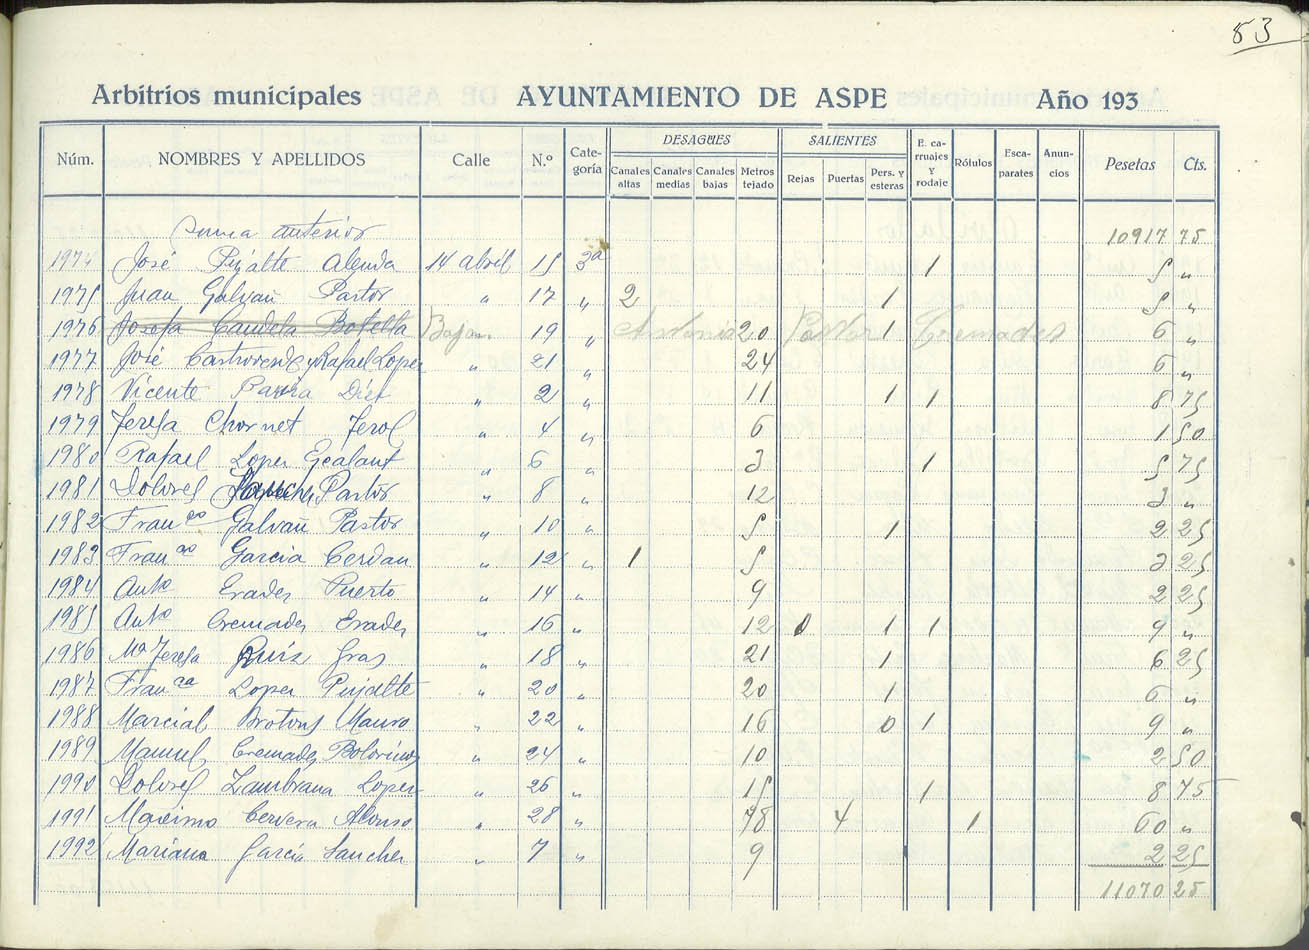 53
Arbitrios municipales AYUNTAMIENTO DE ASPE Año 193
Núm. NOMBRES Y APELLIDOS Calle N.º Cate-goría DESAGÜES Canales altas Canales medias Canales bajas Metros tejado SALIENTES Rejas Puertas Pers. y esteras E. ca-rruajes y rodaje Rótulos Esca-parates Anun-cios Pesetas Cts.
Suma anterior 10917 75
1974 José Pujalte Alenda 14 abril 15 3ª 1 5 "
1975 Juan Galvañ Pastor " 17 " 2 1 5 "
1976 Josefa Candela Botella 19 " Antonia 20 Pastor 1 Cremades 6 "
1977 José Castroverde y Rafael Lopez " 21 " 24 6 "
1978 Vicente Diez " 2 " 11 1 1 8 75
1979 Teresa Chornet Terol " 4 " 6 1 50
1980 Rafael Lopez " 6 " 3 1 5 75
1981 Dolores Pastor " 8 " 12 3 "
1982 Franco Galvañ Pastor " 10 " 5 1 2 25
1983 Franco Garcia Cerdan " 12 " 1 5 2 25
1984 Anto Erades Puerto " 14 " 9 2 25
1985 Anto Cremades Erades " 16 " 12 0 1 1 9 "
1986 Mª Teresa Ruiz Gras " 18 " 21 1 6 25
1987 Franca Lopez Pujalte " 20 " 20 1 6 "
1988 Marcial Brotons Mauro " 22 " 16 0 1 9 "
1989 Manuel Cremades Bolorinos " 24 " 10 2 50
1990 Dolores Zambrana Lopez " 26 " 15 1 8 75
1991 Maximo Cervera Alonso " 28 " 78 4 1 60 "
1992 Mariano García Sanchez " 7 " 9 2 25
11070 25